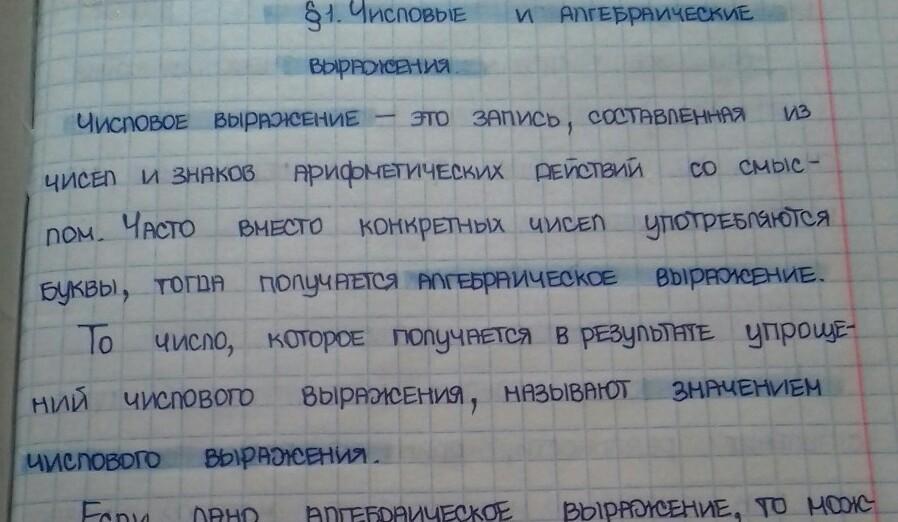 §1. Числовые и алгебраические
выражения.
Числовое выражение — это запись, составленная из
чисел и знаков арифметических действий со смыс-
лом. Часто вместо конкретных чисел употребляются
буквы, тогда получается алгебраическое выражение.
То число, которое получается в результате упроще-
ний числового выражения, называют значением
числового выражения.
Если дано алгебраическое выражение, то мож-